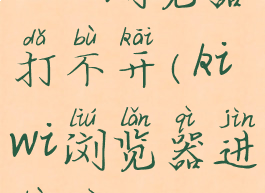 览器
dǎ bù kāi
打不开(ki
liú lǎn qì jìn
wi浏览器进